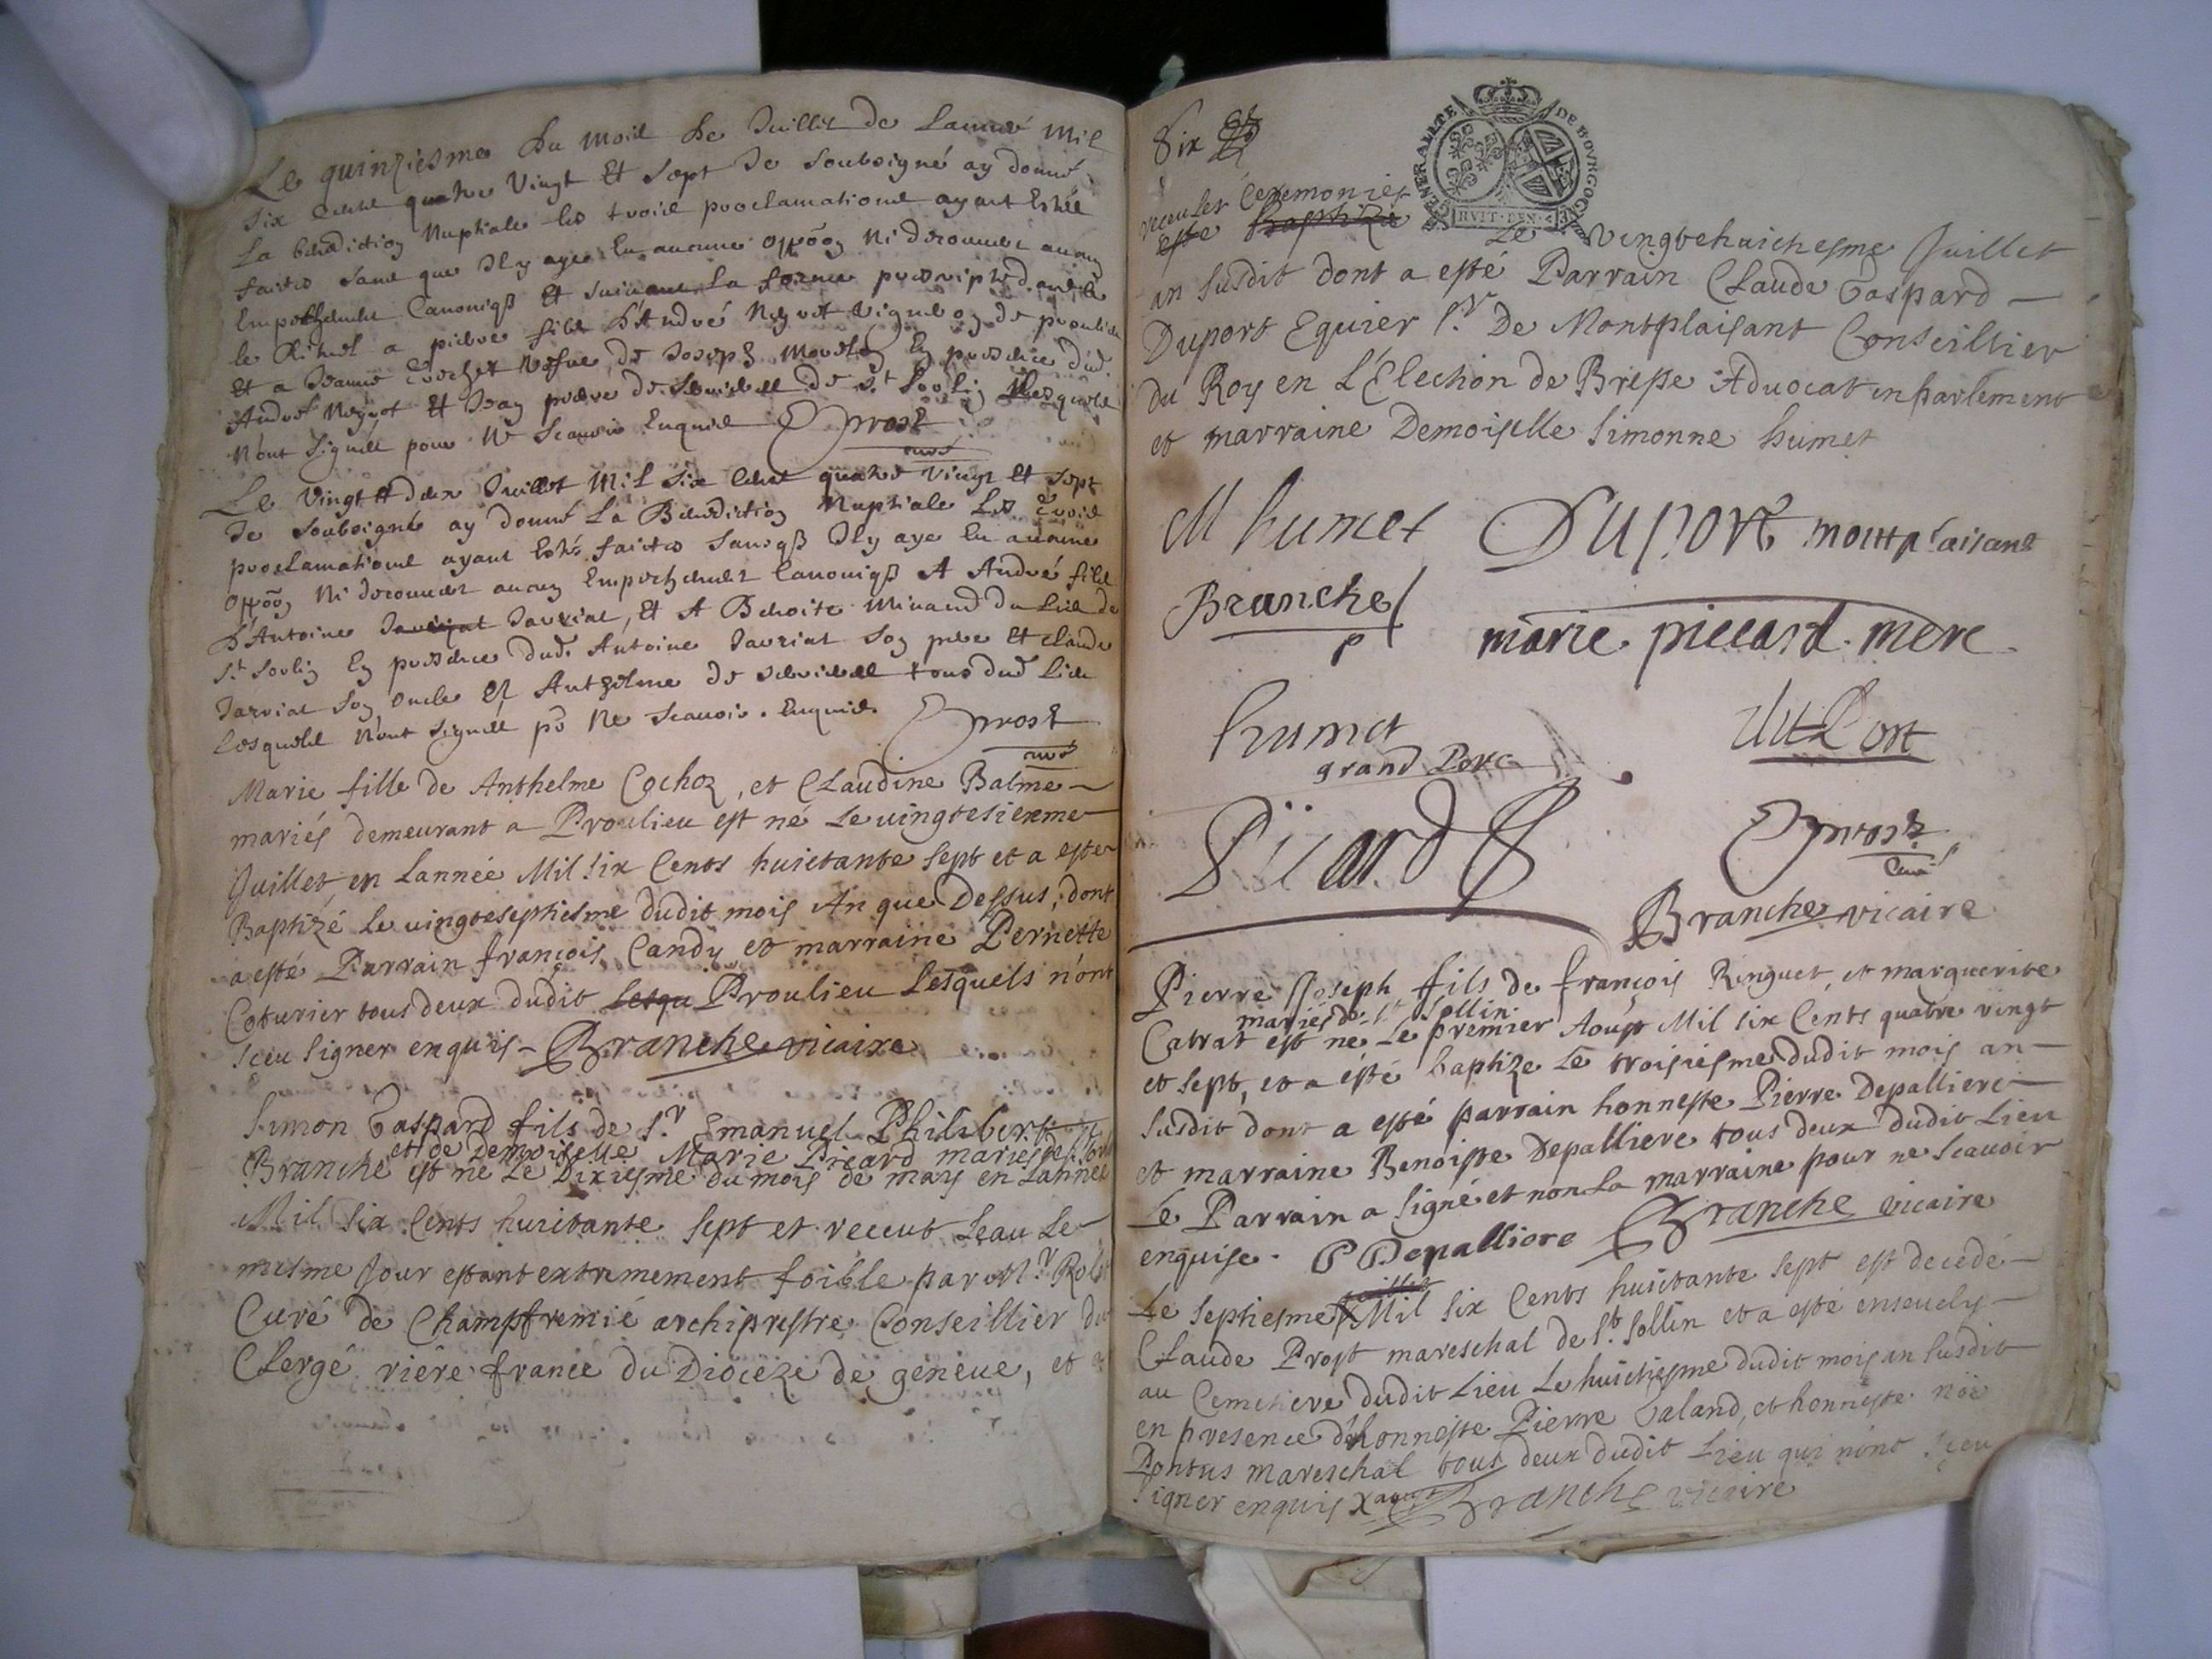 Le quinziesme du mois de Juillet de Lannée Mil
Six Cents quatre Vingt Et Sept Je Soubsigné ay donné
La benediction Nuptiale les trois proclamations ayant Estés
faictes sans que Il y aye Eu aucune oppõon Ni decouuert aucun
Empeschement Canoniqß Et suiuant La forme prescripte dans
le Rituel a pierre fils D'André Neyret vigneron de proulieu
Et a Jeanne Vefue de Joseph En presence dud.
André Neyret Et Jean pierre de St Sorlin Lesquels
N'ont Signés pour Ne Scauoir Enquis Prost
curé
Le Vingt Et deux Juillet Mil Six Cent quatre Vingt Et Sept
Je Soubsigné ay donné La Benediction Nuptiale Les trois
proclamations ayant Estés faictes Sansqß Il y aye Eu aucune
oppõon Ni decouuert aucun Empeschement Canoniqß A André fils
D'Antoine Jarriat, Et A Benoite Minand du Lieu de
St Sorlin En presence dud. Antoine Jarriat Son pere Et claude
Jarriat Son oncle Et Anthelme de tous dud Lieu
Lesquels N'ont Signés põ Ne Scauoir. Enquis. Prost
curé
Marie fille de Anthelme Cochoz, et Claudine Balme
mariés demeurant a Proulieu est né Le uingtesixeme
Juillet en Lannée Mil Six Cents huictante Sept et a esté
Baptizé Le uingteseptiesme dudit mois An que Dessus, dont
a esté Parrain françois Candy et marraine Pernette
Coturier tous deux dudit Lesqu Proulieu Lesquels n'ont
Sceu Signer enquis Branche vicaire
Simon Gaspard fils de Sr Emanuel Philibert
et de Demoiselle Marie Picard mariés de St Sorlin
Branche est né Le Dixiesme du mois de mars en Lannée
Mil Six Cents huictante Sept et receut Leau Le
mesme Jour estant extremement foible par Mr
Curé de Champfremié archiprestre Conseillier du
Clergé riere france du Dioceze de geneue, et a
Six
GENERALITE DE BOVRGOGNE
receu les Ceremonies
esté baptizé Le vingtehuictiesme Juillet
an susdit dont a esté Parrain Claude Gaspard
Duport Equier Sr De Montplaisant Conseillier
du Roy en L'Election de Bresse Aduocat en parlement
et marraine Demoiselle Simonne humet
humet Duport montplaisant
Branche p
marie piccard mere
humet grand Pere
duPort
Picard
Prost
Curé
Branche vicaire
Pierre Joseph fils de françois Ringuet, et marguerite
mariés de St Sollin
Catrat est né Le premier Aoust Mil Six Cents quatre vingt
et sept, et a esté baptizé Le troisiesme dudit mois an
Susdit dont a esté parrain honneste Pierre Depalliere
et marraine Benoiste Depalliere tous deux dudit Lieu
Le Parrain a Signé et non La marraine pour ne Scauoir
enquise. P Depalliere Branche vicaire
juillet
Le Septiesme Mil Six Cents huictante Sept est decedé
Claude Prost mareschal de St Sollin et a esté enseuely
au Cemetiere dudit Lieu Le huictiesme dudit mois an Susdit
en presence d'honneste Pierre Galand, et honneste
mareschal tous deux dudit Lieu qui n'ont Sceu
Signer enquis Branche vicaire